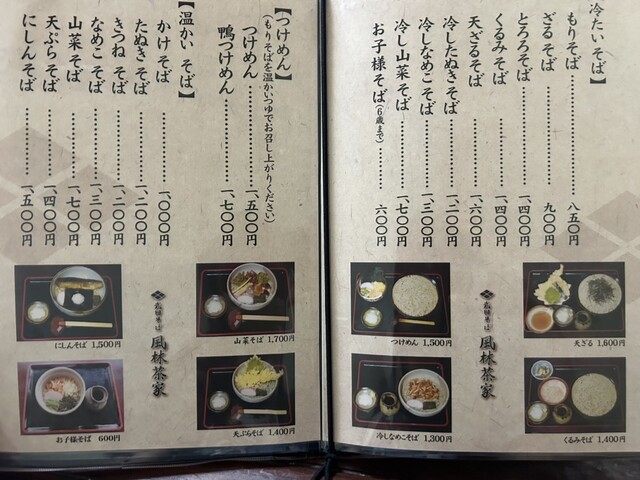 【冷たい そば】
もりそば………………八五〇円
ざる そば………………九〇〇円
とろろそば………………一、四〇〇円
くるみそば………………一、四〇〇円
天ざるそば………………一、六〇〇円
冷したぬきそば………………一、二〇〇円
冷しなめこそば………………一、三〇〇円
冷し山菜そば………………一、七〇〇円
お子様そば(6歳まで)………………六〇〇円
天ざる 1,600円
つけめん 1,500円
くるみそば 1,400円
冷しなめこそば 1,300円
風林茶家
【つけめん】
(もりそばを温かいつゆでお召し上がりください)
つけめん………………一、五〇〇円
鴨つけめん………………一、七〇〇円
【温かい そば】
かけ そば………………一、〇〇〇円
たぬき そば………………一、二〇〇円
きつね そば………………一、二〇〇円
なめこ そば………………一、三〇〇円
山菜 そば………………一、七〇〇円
天ぷら そば………………一、四〇〇円
にしん そば………………一、五〇〇円
山菜そば 1,700円
にしんそば 1,500円
天ぷらそば 1,400円
お子様そば 600円
風林茶家